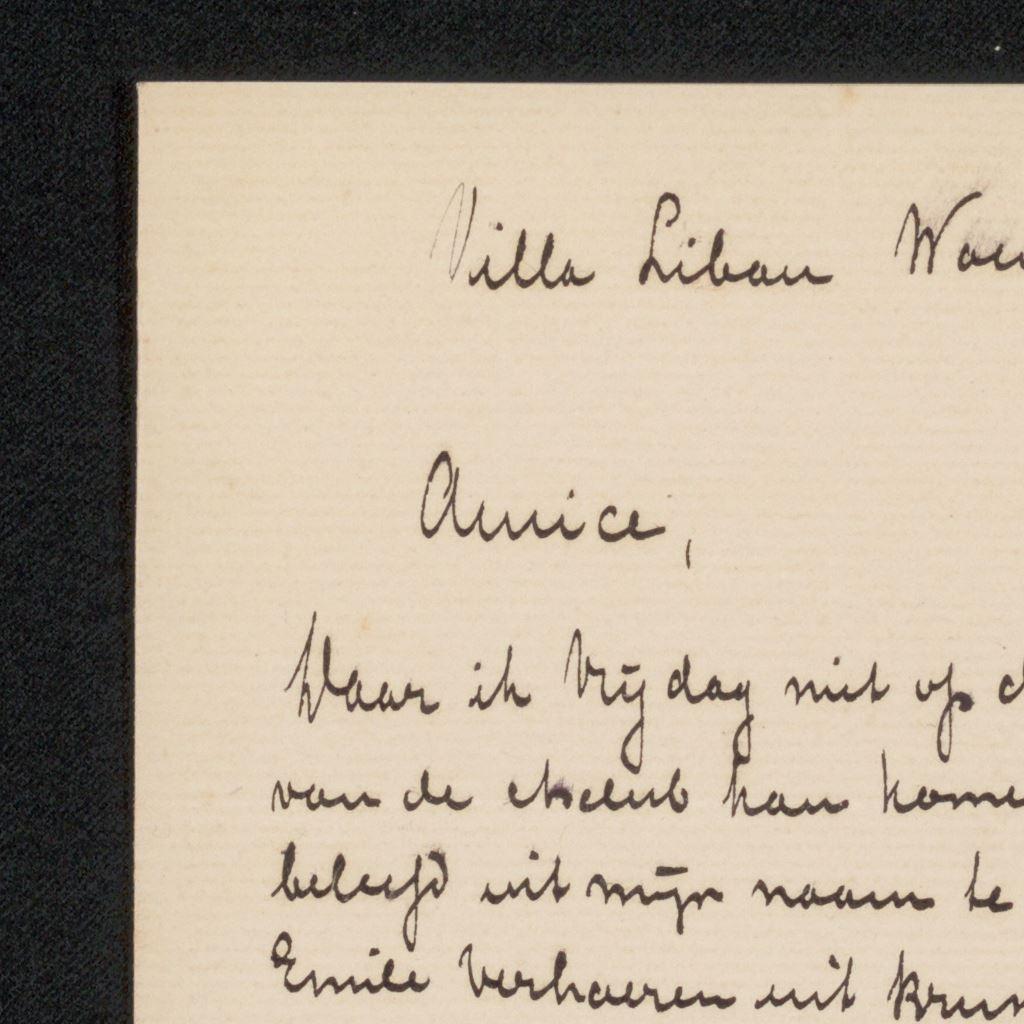 Villa Liban
Amice,
Daar ik Vrijdag niet op
van de etsclub kan
beleefd uit mijn naam te
Emile Verhaeren uit